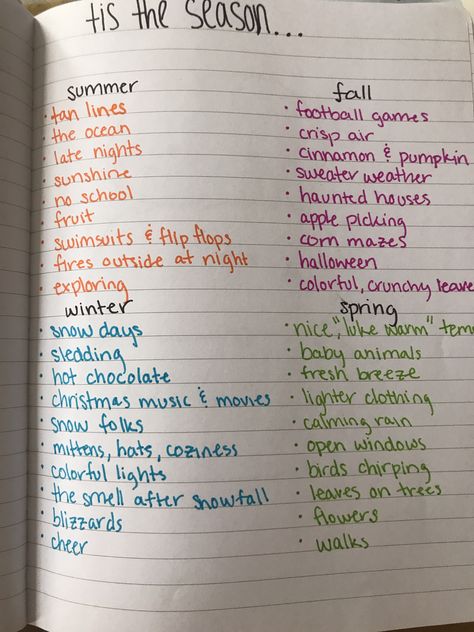 'tis the season...
summer
• tan lines
• the ocean
• late nights
• sunshine
• no school
• fruit
• swimsuits & flip flops
• fires outside at night
• exploring
fall
• football games
• crisp air
• cinnamon & pumpkin
• sweater weather
• haunted houses
• apple picking
• corn mazes
• halloween
• colorful, crunchy leave
winter
• snow days
• sledding
• hot chocolate
• christmas music & movies
• snow folks
• mittens, hats, coziness
• colorful lights
• the smell after snowfall
• blizzards
• cheer
spring
• nice, "luke warm" tem
• baby animals
• fresh breeze
• lighter clothing
• calming rain
• open windows
• birds chirping
• leaves on trees
• flowers
• walks